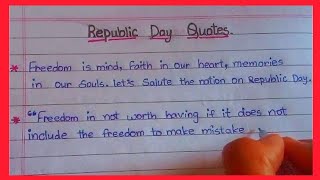 Republic Day Quotes.
* Freedom is mind, Faith in our heart, memories
in our Souls. let's Salute the nation on Republic Day.
* "Freedom in not worth having if it does not
include the freedom to make mistake